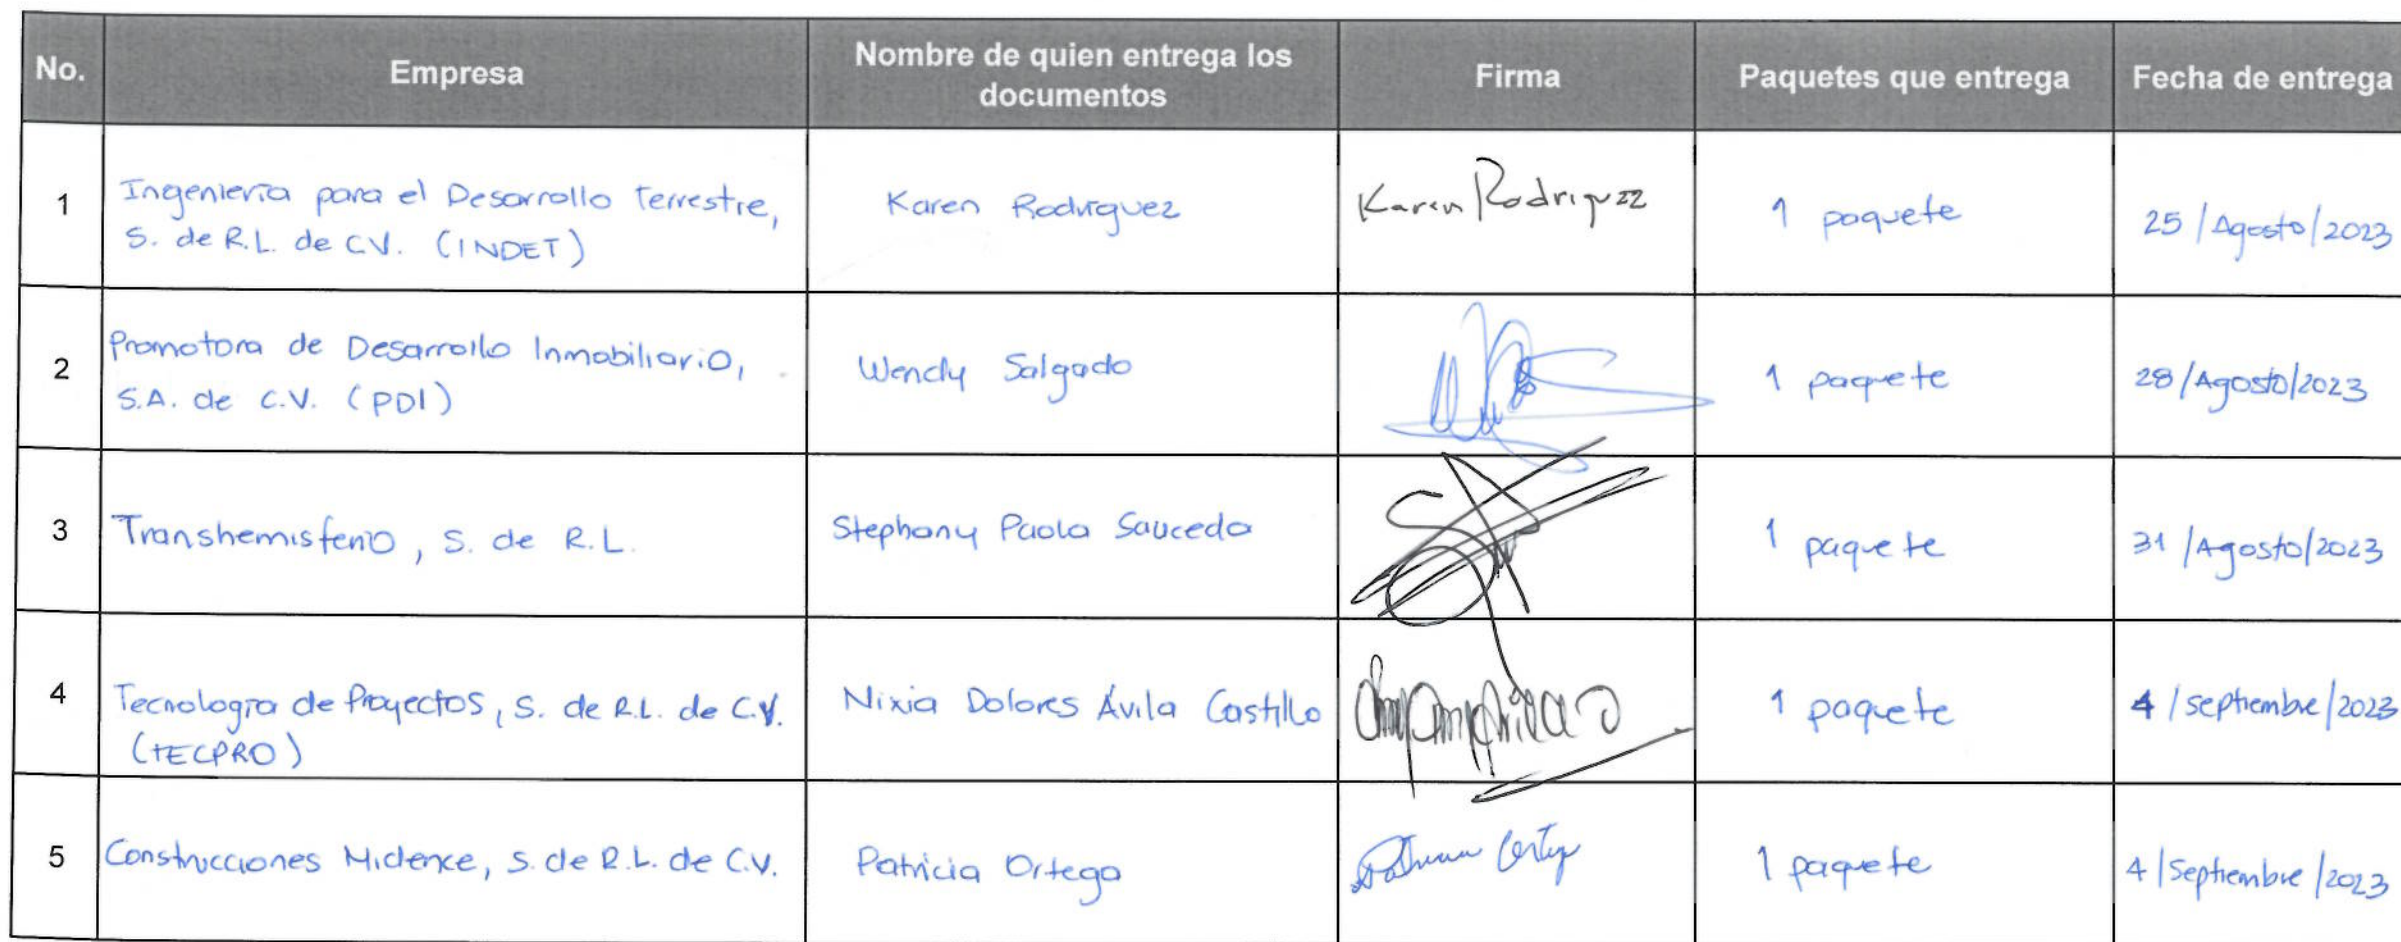 No. Empresa Nombre de quien entrega los documentos Firma Paquetes que entrega Fecha de entrega
1 Ingeniería para el Desarrollo Terrestre, S. de R.L. de C.V. (INDET) Karen Rodríguez Karen Rodriguez 1 paquete 25/Agosto/2023
2 Promotora de Desarrollo Inmobiliario, S.A. de C.V. (PDI) Wendy Salgado 1 paquete 28/Agosto/2023
3 Transhemisferio, S. de R.L. Stephany Paola Sauceda 1 paquete 31/Agosto/2023
4 Tecnología de Proyectos, S. de R.L. de C.V. (TECPRO) Nixia Dolores Ávila Castillo 1 paquete 4/Septiembre/2023
5 Construcciones Midence, S. de R.L. de C.V. Patricia Ortega 1 paquete 4/Septiembre/2023